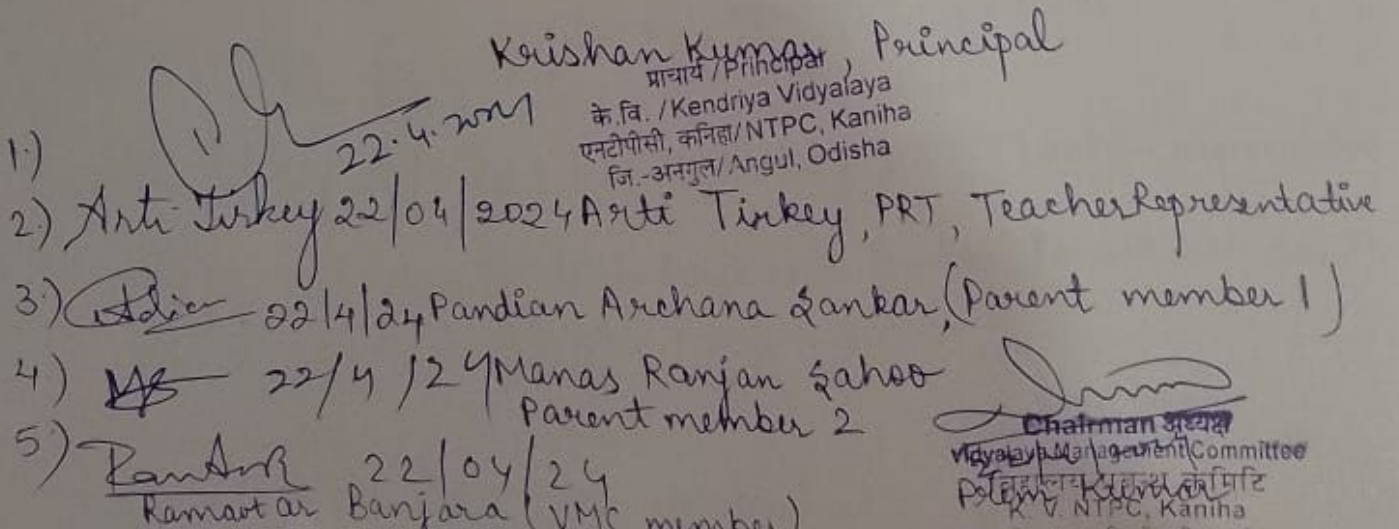 Krishan Kumar, Principal
प्राचार्य / Principal
के.वि. / Kendriya Vidyalaya
एनटीपीसी, कनिहा / NTPC, Kaniha
जि.-अनगुल / Angul, Odisha
1.) 22.4.2024
2.) Arti Tirkey 22/04/2024 Arti Tirkey, PRT, Teacher Representative
3.) 22/4/24 Pandian Archana Sankar, (Parent member 1)
4.) 22/4/24 Manas Ranjan Sahoo
Parent member 2
5.) 22/04/24
Ramavtar Banjara (VMC member)
Chairman अध्यक्ष
Vidyalaya Management Committee
विद्यालय प्रबन्ध समिति
K. V. NTPC, Kaniha